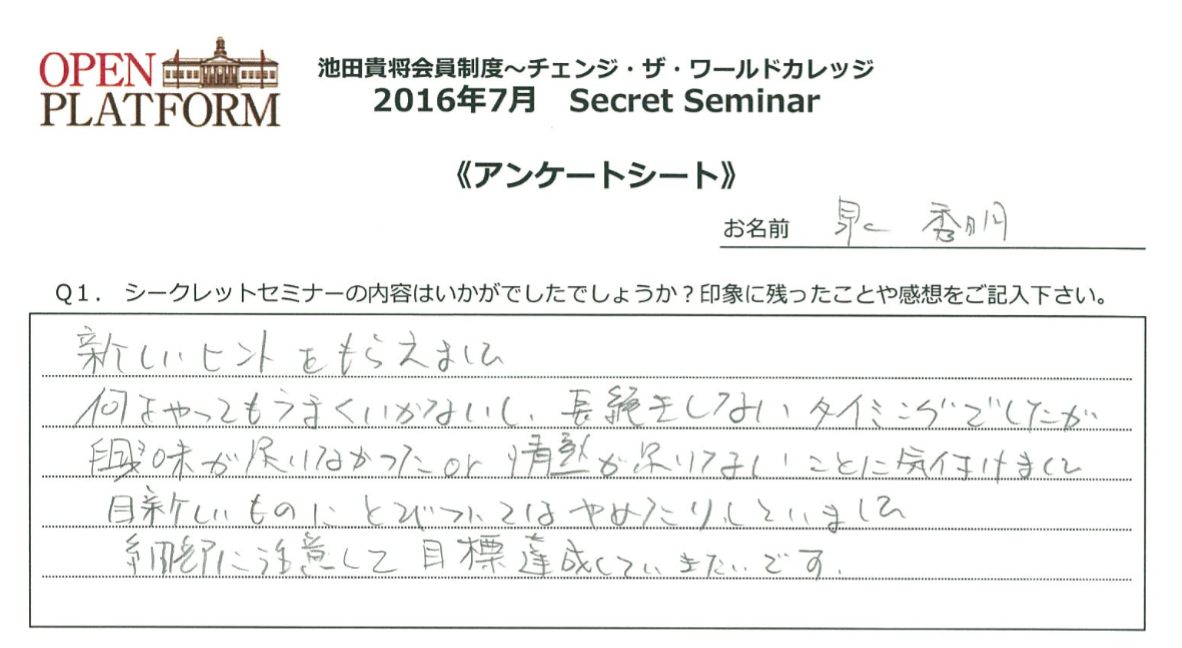 OPEN
PLATFORM
池田貴将会員制度～チェンジ・ザ・ワールドカレッジ
2016年7月 Secret Seminar
《アンケートシート》
お名前 泉 秀明
Q1. シークレットセミナーの内容はいかがでしたでしょうか？印象に残ったことや感想をご記入下さい。
新しいヒントをもらえました
何をやってもうまくいかないし、長続きしないタイミングでしたが
興味が足りなかったor 情熱が足りてないことに気付けました
目新しいものにとびついてはやめたりしていました
に注意して目標達成していきたいです.